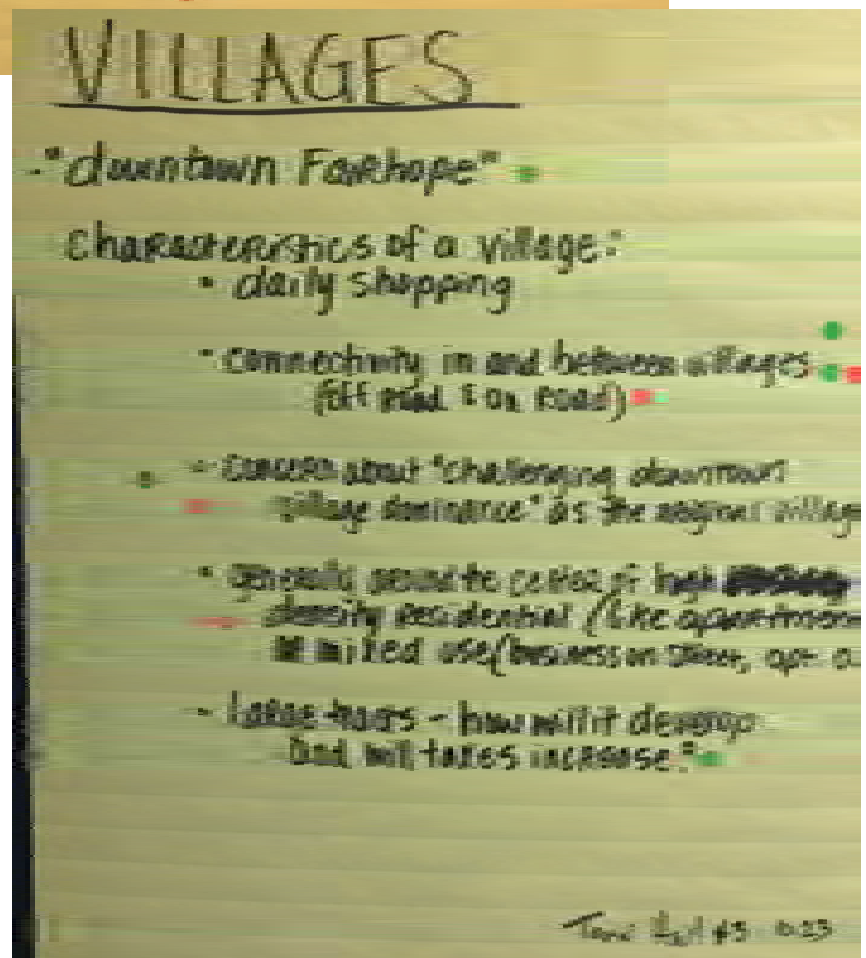 VILLAGES
• "downtown Fairhope"
Characteristics of a village:
• daily shopping
• connectivity in and between villages
(off road & on road)
• concern about "challenging downtown
village dominance" as the original village
• generally high
density residential (like
mixed use (business on
• how will it develop
and will taxes increase?